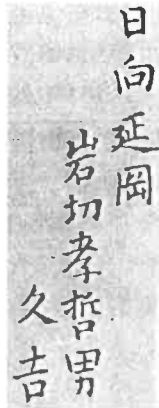 日向延岡
岩切孝哲男
久吉